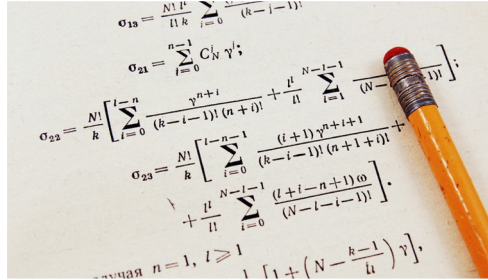 σ₁₃ = N! lˡ / l! k ∑ i=0 (k−i−1)!
σ₂₁ = ∑ i=0 n−1 C_N^i γ^i;
σ₂₂ = N!/k [ ∑ i=0 l−n γ^{n+i} / (k−i−1)! (n+i)! + lˡ/l! ∑ i=1 N−l−1 / (N− )! ];
σ₂₃ = N!/k [ ∑ i=0 l−n−1 (i+1) γ^{n+i+1} / (k−i−1)! (n+1+i)! +
+ lˡ/l! ∑ i=0 N−l−1 (l+i−n+1) ω / (N−l−i−1)! ].
лучая n=1, l⩾1
[1 + (N − k−1 / ) γ],